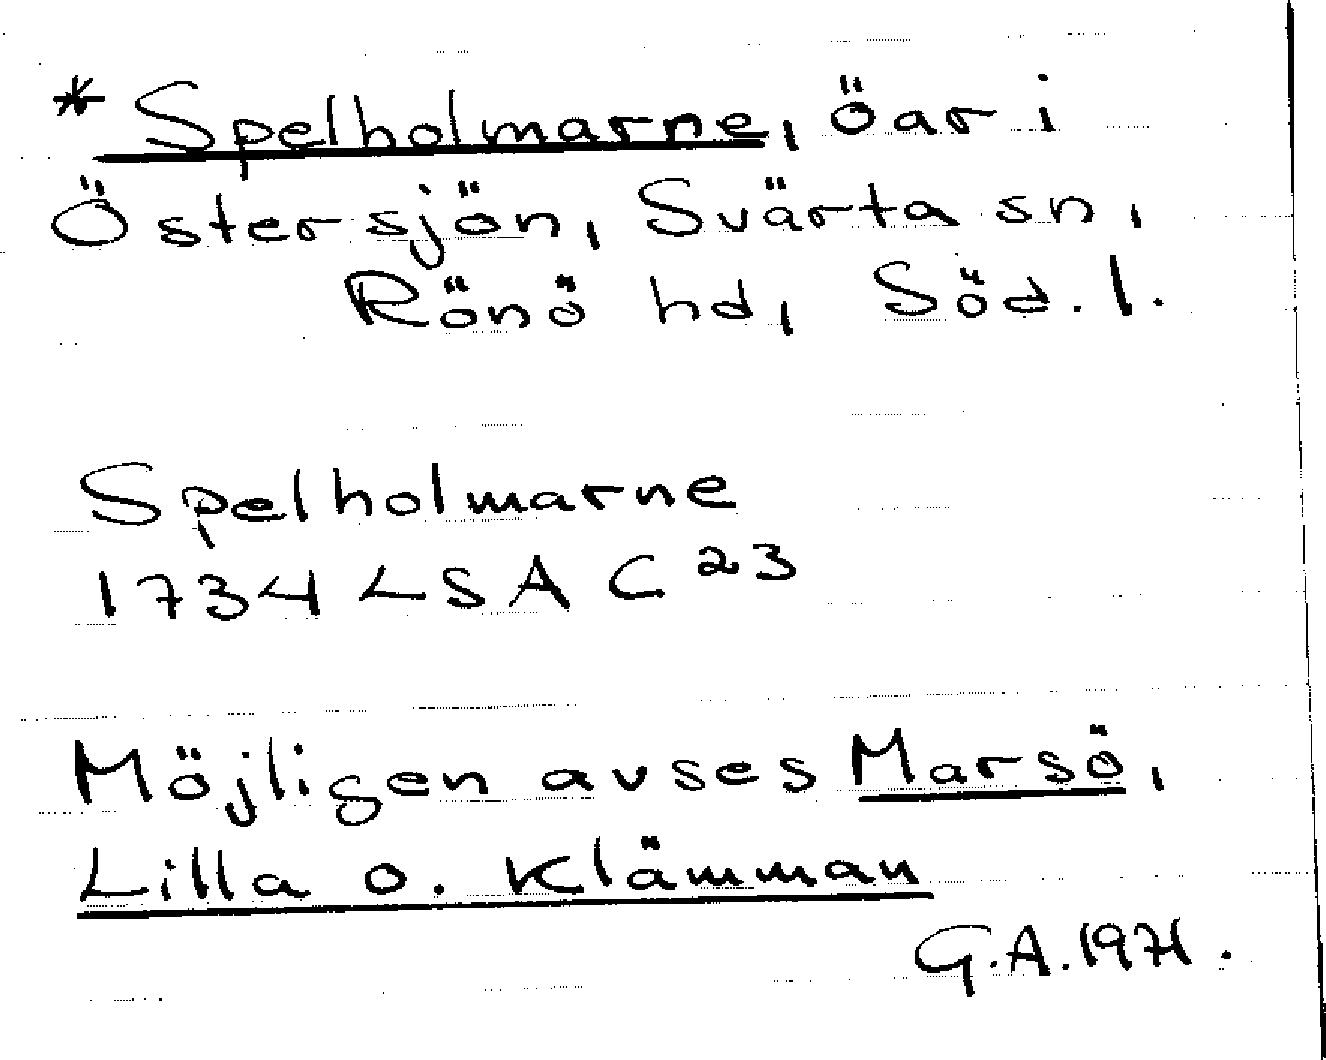 * Spelholmarne, öar i
Östersjön, Svärta sn,
Rönö hd, Söd. l.
Spelholmarne
1734 LSA C 23
Möjligen avses Marsö,
Lilla o. Klämman
G.A. 1971.